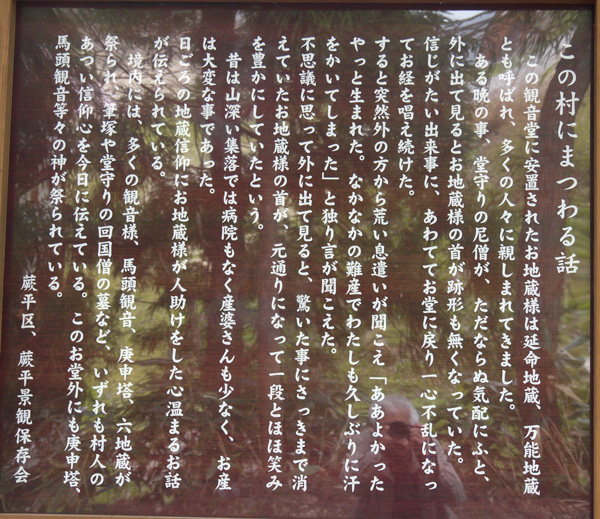 この村にまつわる話
この観音堂に安置されたお地蔵様は延命地蔵、万能地蔵
とも呼ばれ、多くの人々に親しまれてきました。
ある晩の事、堂守りの尼僧が、ただならぬ気配にふと、
外に出て見るとお地蔵様の首が跡形も無くなっていた。
信じがたい出来事に、あわててお堂に戻り一心不乱になっ
てお経を唱え続けた。
すると突然外の方から荒い息遣いが聞こえ「ああよかった
やっと生まれた。なかなかの難産でわたしも久しぶりに汗
をかいてしまった」と独り言が聞こえた。
不思議に思って外に出て見ると、驚いた事にさっきまで消
えていたお地蔵様の首が、元通りになって一段とほほ笑み
を豊かにしていたという。
昔は山深い集落では病院もなく産婆さんも少なく、お産
は大変な事であった。
日ごろの地蔵信仰にお地蔵様が人助けをした心温まるお話
が伝えられている。
境内には、多くの観音様、馬頭観音、庚申塔、六地蔵が
祭られ、筆塚や堂守りの回国僧の墓など、いずれも村人の
あつい信仰心を今日に伝えている。このお堂外にも庚申塔、
馬頭観音等々の神が祭られている。
蕨平区、蕨平景観保存会